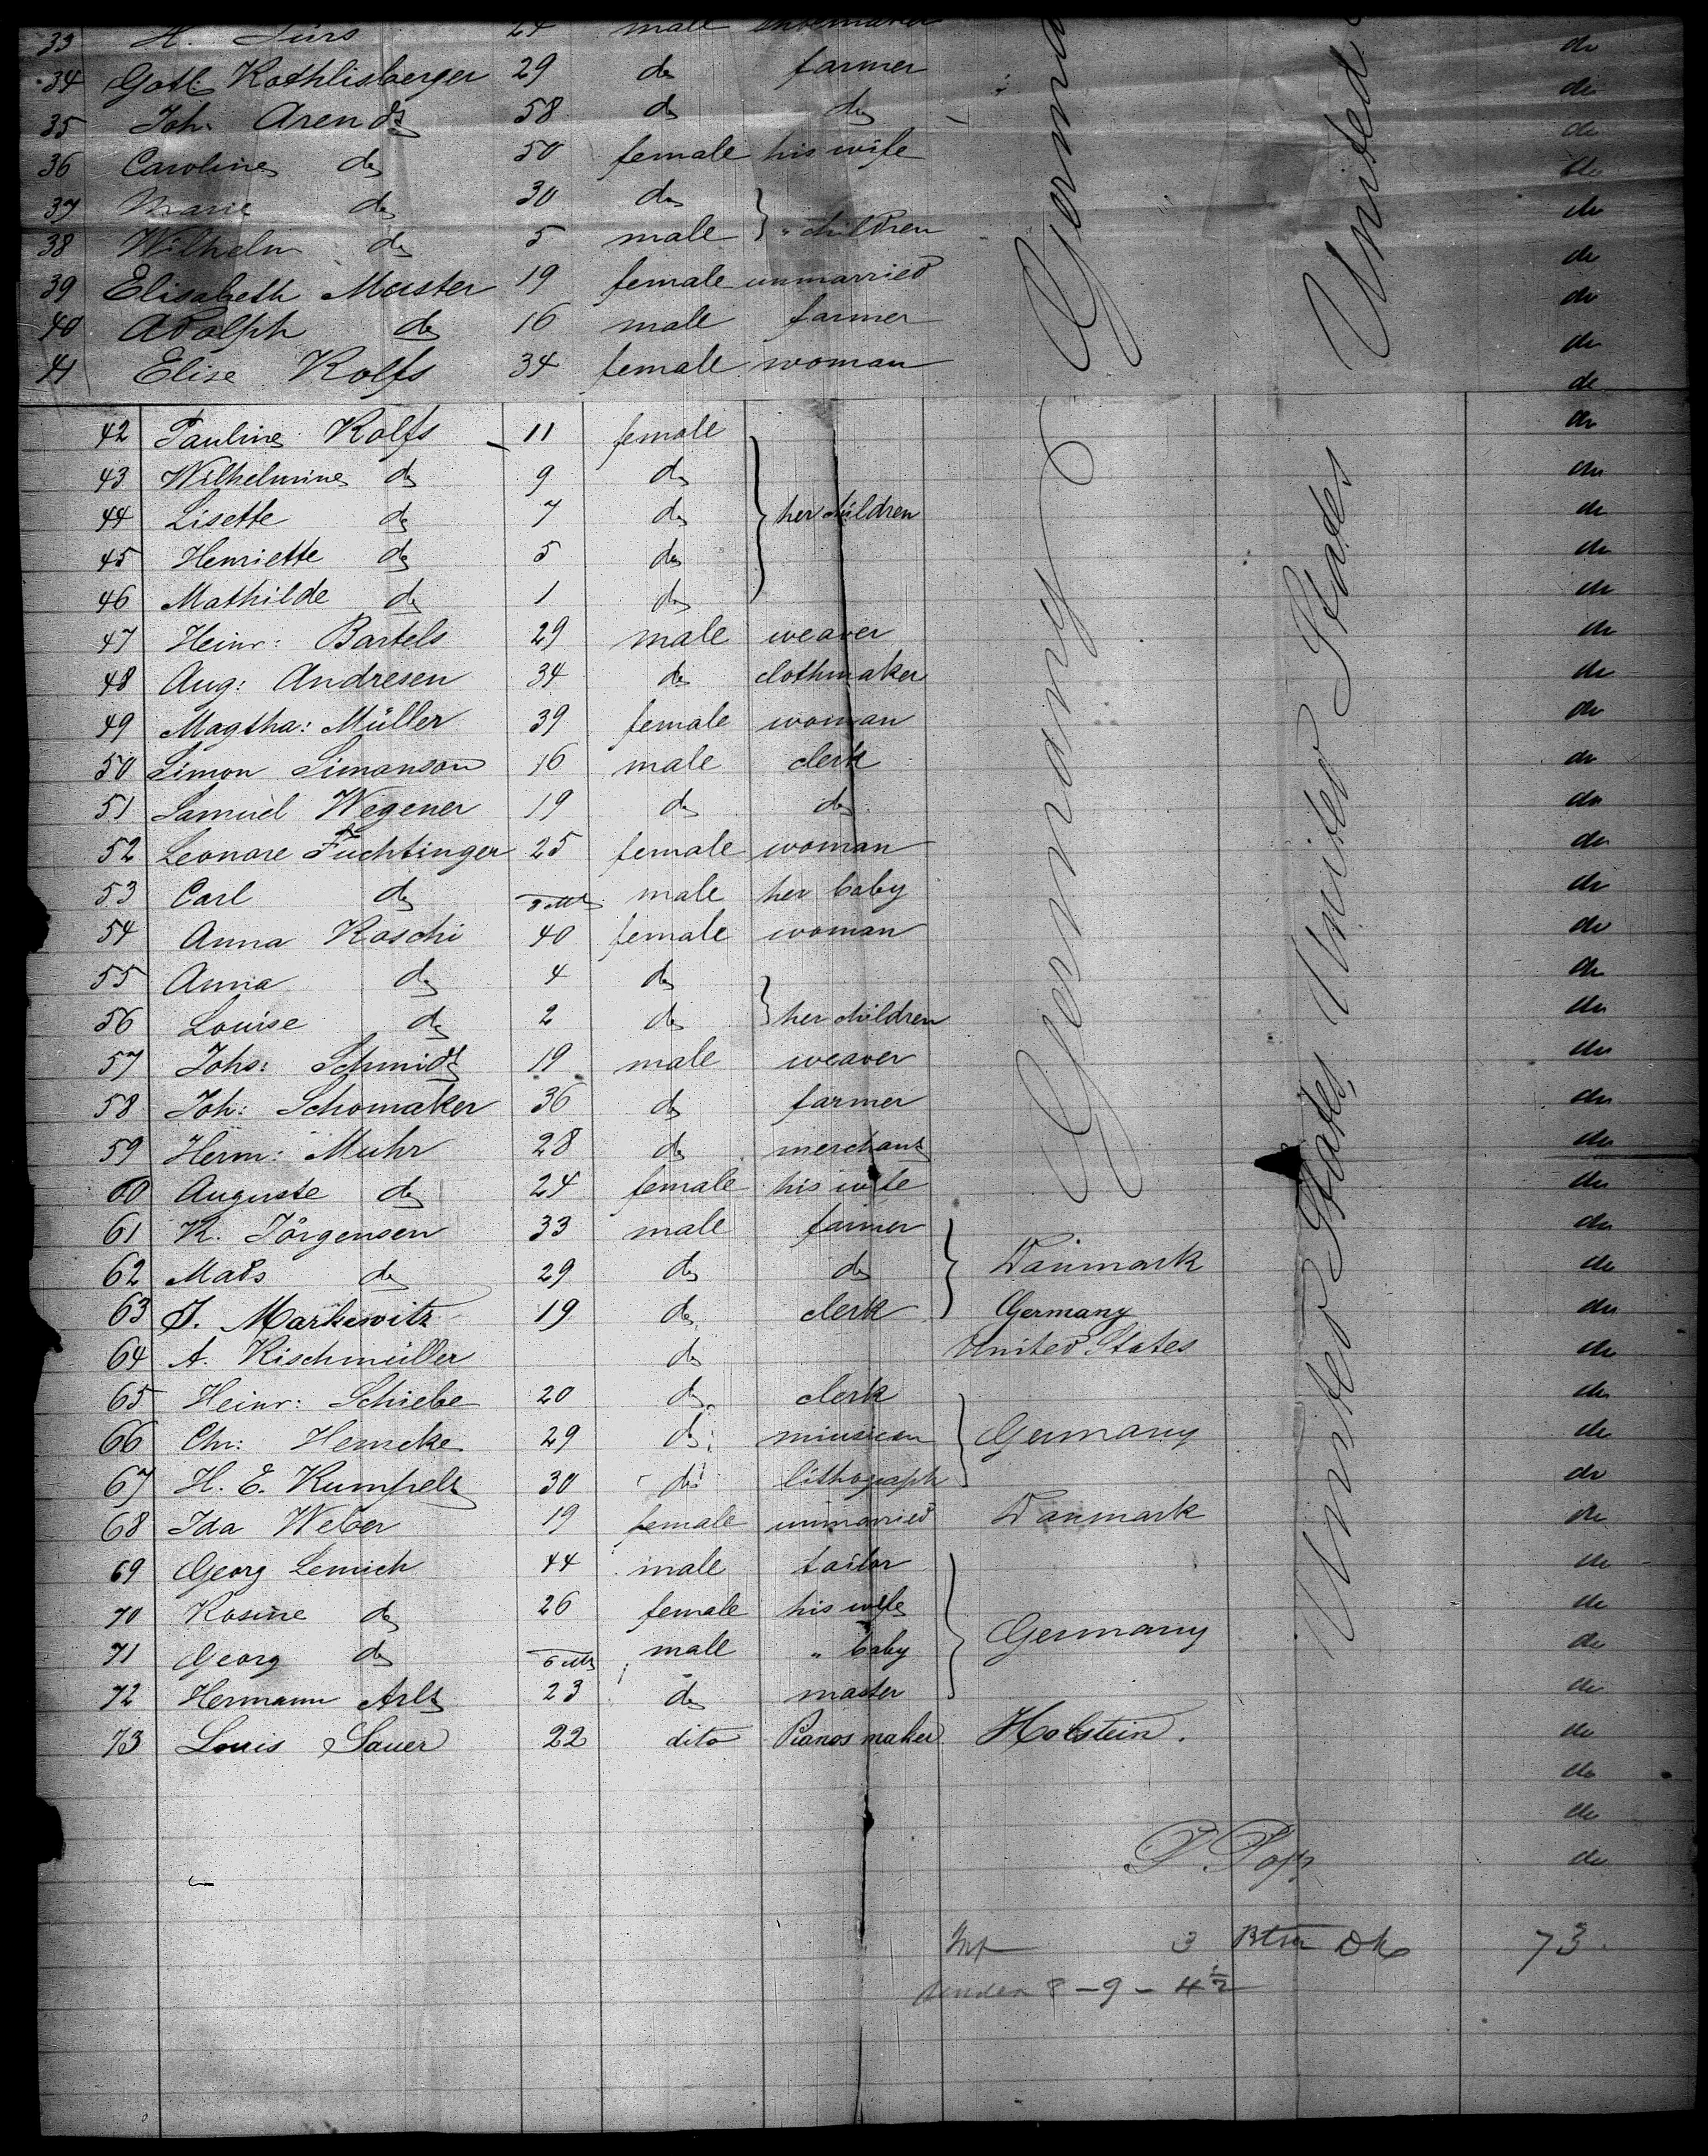 33 H. Sürs 24 male
34 Gotl. Röthlisberger 29 do farmer do
35 Joh: Arendt 58 do do do
36 Caroline do 50 female his wife do
37 Marie do 30 do do
38 Wilhelm do 5 male } " children do
39 Elisabeth Muster 19 female unmarried do
40 Adolph do 16 male farmer do
41 Elise Rolfs 34 female woman do
Germany
United States
42 Pauline Rolfs 11 female do
43 Wilhelmine do 9 do do
44 Lisette do 7 do } her children do
45 Henriette do 5 do do
46 Mathilde do 1 do do
47 Heinr: Bartels 29 male weaver do
48 Aug: Andresen 34 do clothmaker do
49 Magtha: Müller 39 female woman do
50 Simon Simonson 16 male clerk do
51 Samuel Wegener 19 do do do
52 Leonore Füchtinger 25 female woman do
53 Carl do male her baby do
54 Anna Roschi 40 female woman do
55 Anna do 4 do do
56 Louise do 2 do } her children do
57 Johs: Schmidt 19 male weaver do
58 Joh: Schomaker 36 do farmer do
59 Herm: Muhr 28 do merchant do
60 Auguste do 24 female his wife do
Germany
United States
61 K. Jörgensen 33 male farmer do
62 Mads do 29 do do } Danmark do
63 J. Markewitz 19 do clerk Germany do
64 A. Rischmüller do United States do
65 Heinr: Schiebe 20 do clerk do
66 Chr: Hemcke 29 do miusican } Germany do
67 H. E. Kumpelt 30 do lithograph do
68 Ida Weber 19 female unmarried Danmark do
69 Georg Lemich 44 male tailor do
70 Rosine do 26 female his wife do
71 Georg do male " baby } Germany do
72 Hermann Arlt 23 do master do
73 Louis Sauer 22 dito Pianos maker Holstein. do
United States
do
do
do
P. Popp
3 73
Under 8 - 9 - 4½